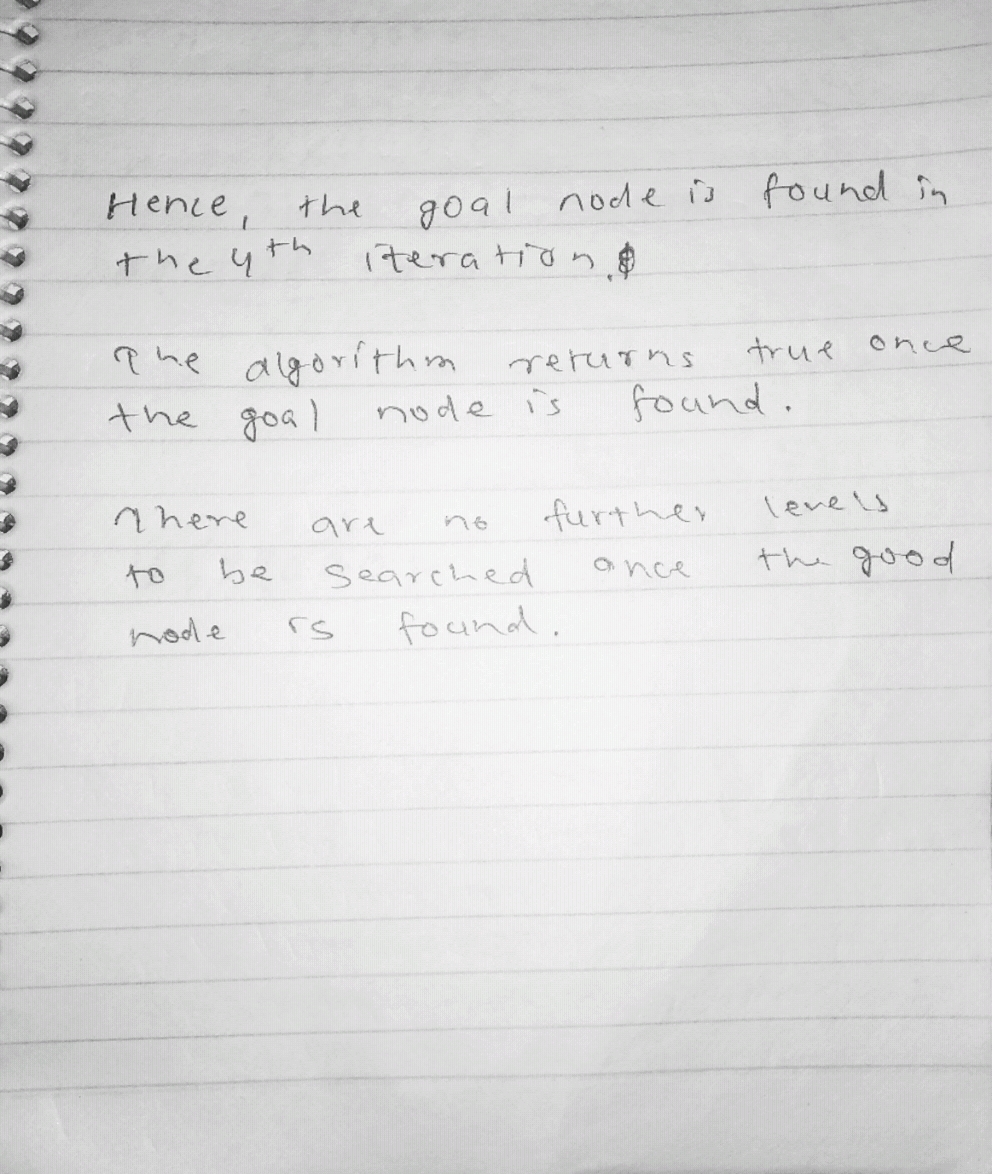 Hence, the goal node is found in
the 4th iteration.
The algorithm returns true once
the goal node is found.
There are no further levels
to be searched once the good
node is found.